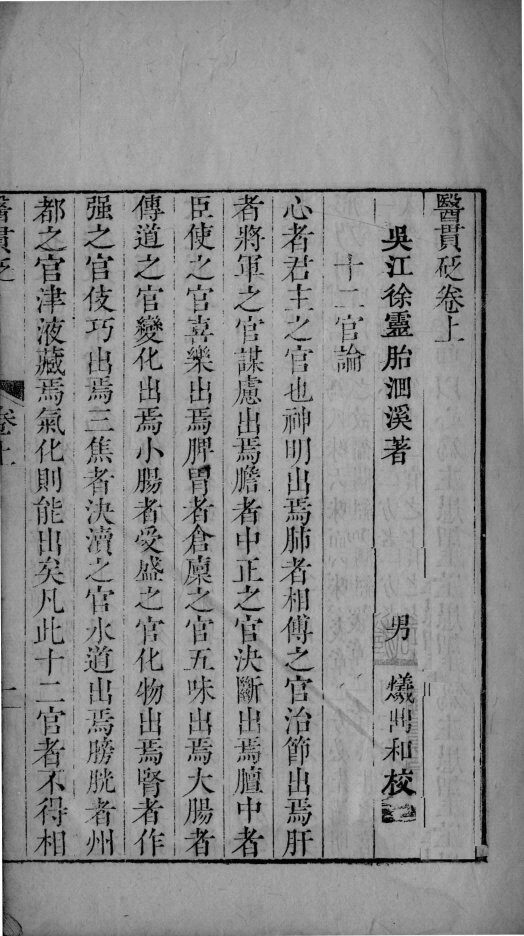 醫貫砭卷上
吳江徐靈胎洄溪著 男 爔鼎和校
十二官論
心者君主之官也神明出焉肺者相傅之官治節出焉肝
者將軍之官謀慮出焉膽者中正之官決斷出焉膻中者
臣使之官喜樂出焉脾胃者倉廩之官五味出焉大腸者
傳道之官變化出焉小腸者受盛之官化物出焉腎者作
强之官伎巧出焉三焦者決瀆之官水道出焉膀胱者州
都之官津液藏焉氣化則能出矣凡此十二官者不得相
醫貫砭 卷上 一